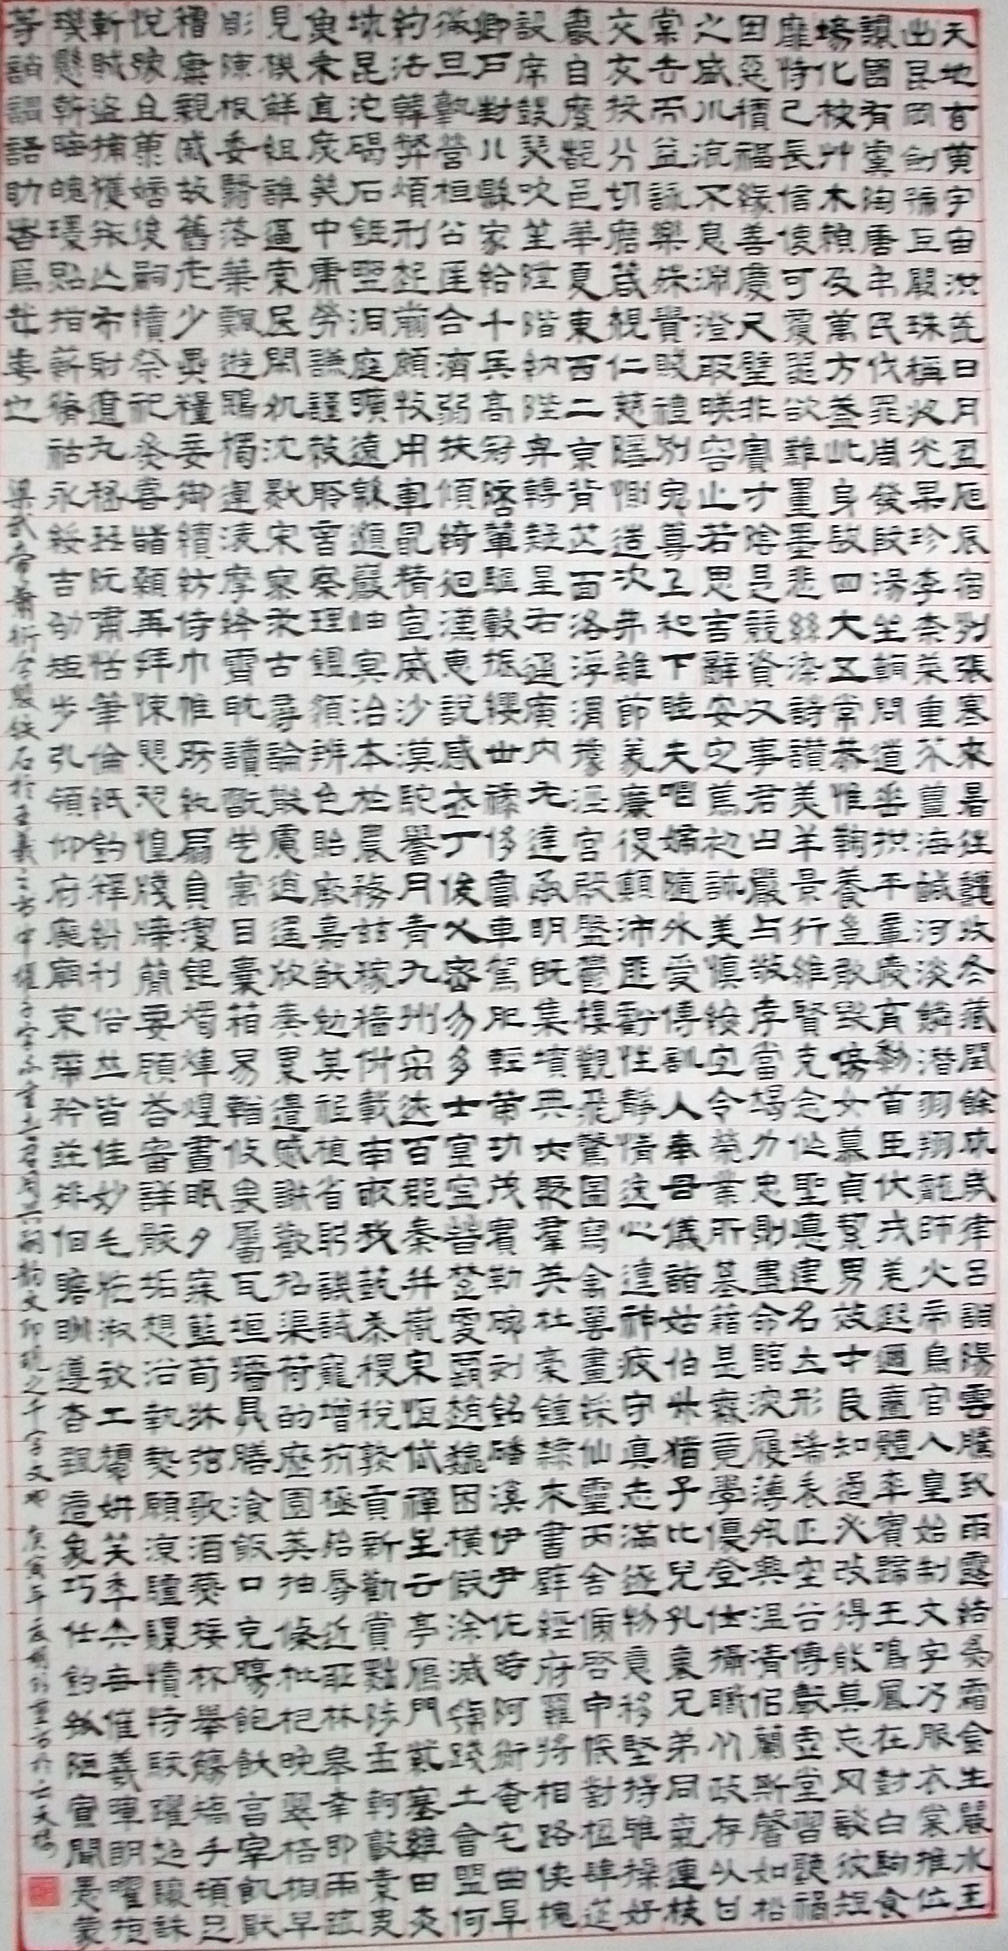 天地玄黃宇宙洪荒日月盈昃辰宿列張寒來暑往秋收冬藏閏餘成歲律呂調陽雲騰致雨露結為霜金生麗水玉
出崑岡劍號巨闕珠稱夜光果珍李柰菜重芥薑海鹹河淡鱗潛羽翔龍師火帝鳥官人皇始制文字乃服衣裳推位
讓國有虞陶唐弔民伐罪周發殷湯坐朝問道垂拱平章愛育黎首臣伏戎羌遐邇壹體率賓歸王鳴鳳在白駒食
場化被草木賴及萬方蓋此身髮四大五常恭惟鞠養豈敢毀傷女慕貞絜男效才良知過必改得能莫忘罔談彼短
靡恃己長信使可覆器欲難量墨悲絲染詩讚羔羊景行維賢克念作聖德建名立形端表正空谷傳聲虛堂習聽禍
因惡積福緣善慶尺璧非寶寸陰是競資父事君曰嚴与敬孝當竭力忠則盡命臨深履薄夙興溫清似蘭斯馨如松
之盛川流不息淵澄取映容止若思言辭安定篤初誠美慎終宜令榮業所基籍甚無竟學優登仕攝職從政存以甘
棠去而益詠樂殊貴賤禮別尊卑上和下睦夫唱婦隨外受傅訓入奉母儀諸姑伯叔猶子比兒孔懷兄弟同氣連枝
交友投分切磨箴規仁慈隱惻造次弗離節義廉退顛沛匪虧性靜情逸心動神疲守真志滿逐物意移堅持雅操好
爵自縻都邑華夏東西二京背芒面洛浮渭據涇宮殿盤鬱樓觀飛驚圖寫禽獸畫綵仙靈丙舍傍啓甲帳對楹肆筵
設席鼓瑟吹笙陞階納陛弁轉疑星右通廣內左達承明既集墳典亦聚羣英杜稾鍾隸漆書壁經府羅將相路俠槐
卿戶封八縣家給千兵高冠陪輦驅轂振纓世祿侈富車駕肥輕策功茂實勒碑刻銘磻溪伊尹佐時阿衡奄宅曲阜
微旦孰營桓公匡合濟弱扶傾綺迴漢惠說感武丁俊乂密勿多士寔寧晉楚更霸趙魏困橫假途滅虢踐土會盟何
約法韓弊煩刑起翦頗牧用軍最精宣威沙漠馳譽丹青九州禹跡百郡秦并嶽宗恆岱禪主云亭雁門紫塞雞田赤
城昆池碣石鉅野洞庭曠遠緜邈巖岫冥治本於農務茲稼穡俶載南畝我藝黍稷稅熟貢新勸賞黜陟孟軻敦素史
魚秉直庶幾中庸勞謙謹敕聆音察理鑑貌辨色貽厥嘉猷勉其祗植省躬譏誡寵增抗極殆辱近恥林皋幸即兩疏
見機解組誰逼索居閑処沈默寂寥求古尋論散慮逍遙欣奏累遣感謝歡招渠荷的歷園莽抽條枇杷晚翠梧桐早
彫陳根委翳落葉飄颻遊鵾獨運凌摩絳霄耽讀翫市寓目囊箱易輶攸畏屬耳垣牆具膳飡飯適口充腸飽飫烹宰飢厭
糟糠親戚故舊老少異糧妾御績紡侍巾帷房紈扇員潔銀燭煒煌晝眠夕寐藍筍床弦歌酒讌接杯舉觴矯手頓足
悅豫且康嫡後嗣續祭祀烝嘗稽顙再拜悚懼恐惶牋牒簡要顧答審詳骸垢想浴執熱願涼驢騾犢特駭躍超驤誅
斬賊盜捕獲叛亡布射遼丸嵇琴阮嘯恬筆倫紙鈞釋紛利俗竝皆佳妙毛施淑姿工顰妍笑年矢每催羲暉朗曜
璇懸斡晦魄環照指薪脩祜永綏吉劭矩步引領仰府廊廟束帶矜莊徘徊瞻眺遵象巧任釣孤陋寡聞愚蒙
等誚謂語助者焉哉乎也
梁武帝蕭衍令殷鉄石於王羲之書中擇千字不重者召周興嗣韵文即號之千字文也 庚寅年重書於云天楼